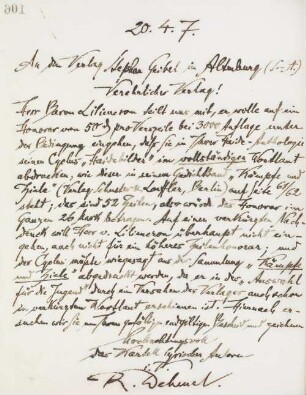 901
20. 4. 7.
An den Verlag Stephan Geibel in Altenburg (S.-A.)
Verehrlicher Verlag!
Herr Baron Liliencron teilt uns mit, er wolle auf ein
Honorar von 50 ₰ pro Verszeile bei 3000 Auflage unter
der Bedingung eingehen, daß Sie in Ihrer Haide-Anthologie
seinen Cyclus „Haidebilder" im vollständigen Wortlaut
abdrucken, wie dieser in seinem Gedichtband „Kämpfe und
Ziele" (Verlag Schuster u. Loeffler, Berlin) auf Seite
steht; das sind 52 Zeilen, also würde das Honorar im
Ganzen 26 Mark betragen. Auf einen verkürzten Nach-
druck will Herr v. Liliencron überhaupt nicht ein-
gehen, auch nicht für ein höheres Zeilenhonorar; und
der Cyclus müßte, wiegesagt aus der Sammlung „Kämpfe
und Ziele" abgedruckt werden, da er in der „Auswahl
für die Jugend" durch ein Versehen des Verlages auch schon
in verkürztem Wortlaut erschienen ist. Hiernach er-
suchen wir Sie um Ihren gefälligen endgültigen Bescheid und zeichnen
hochachtungsvoll
das Kartell lyrischer Autoren
R. Dehmel.